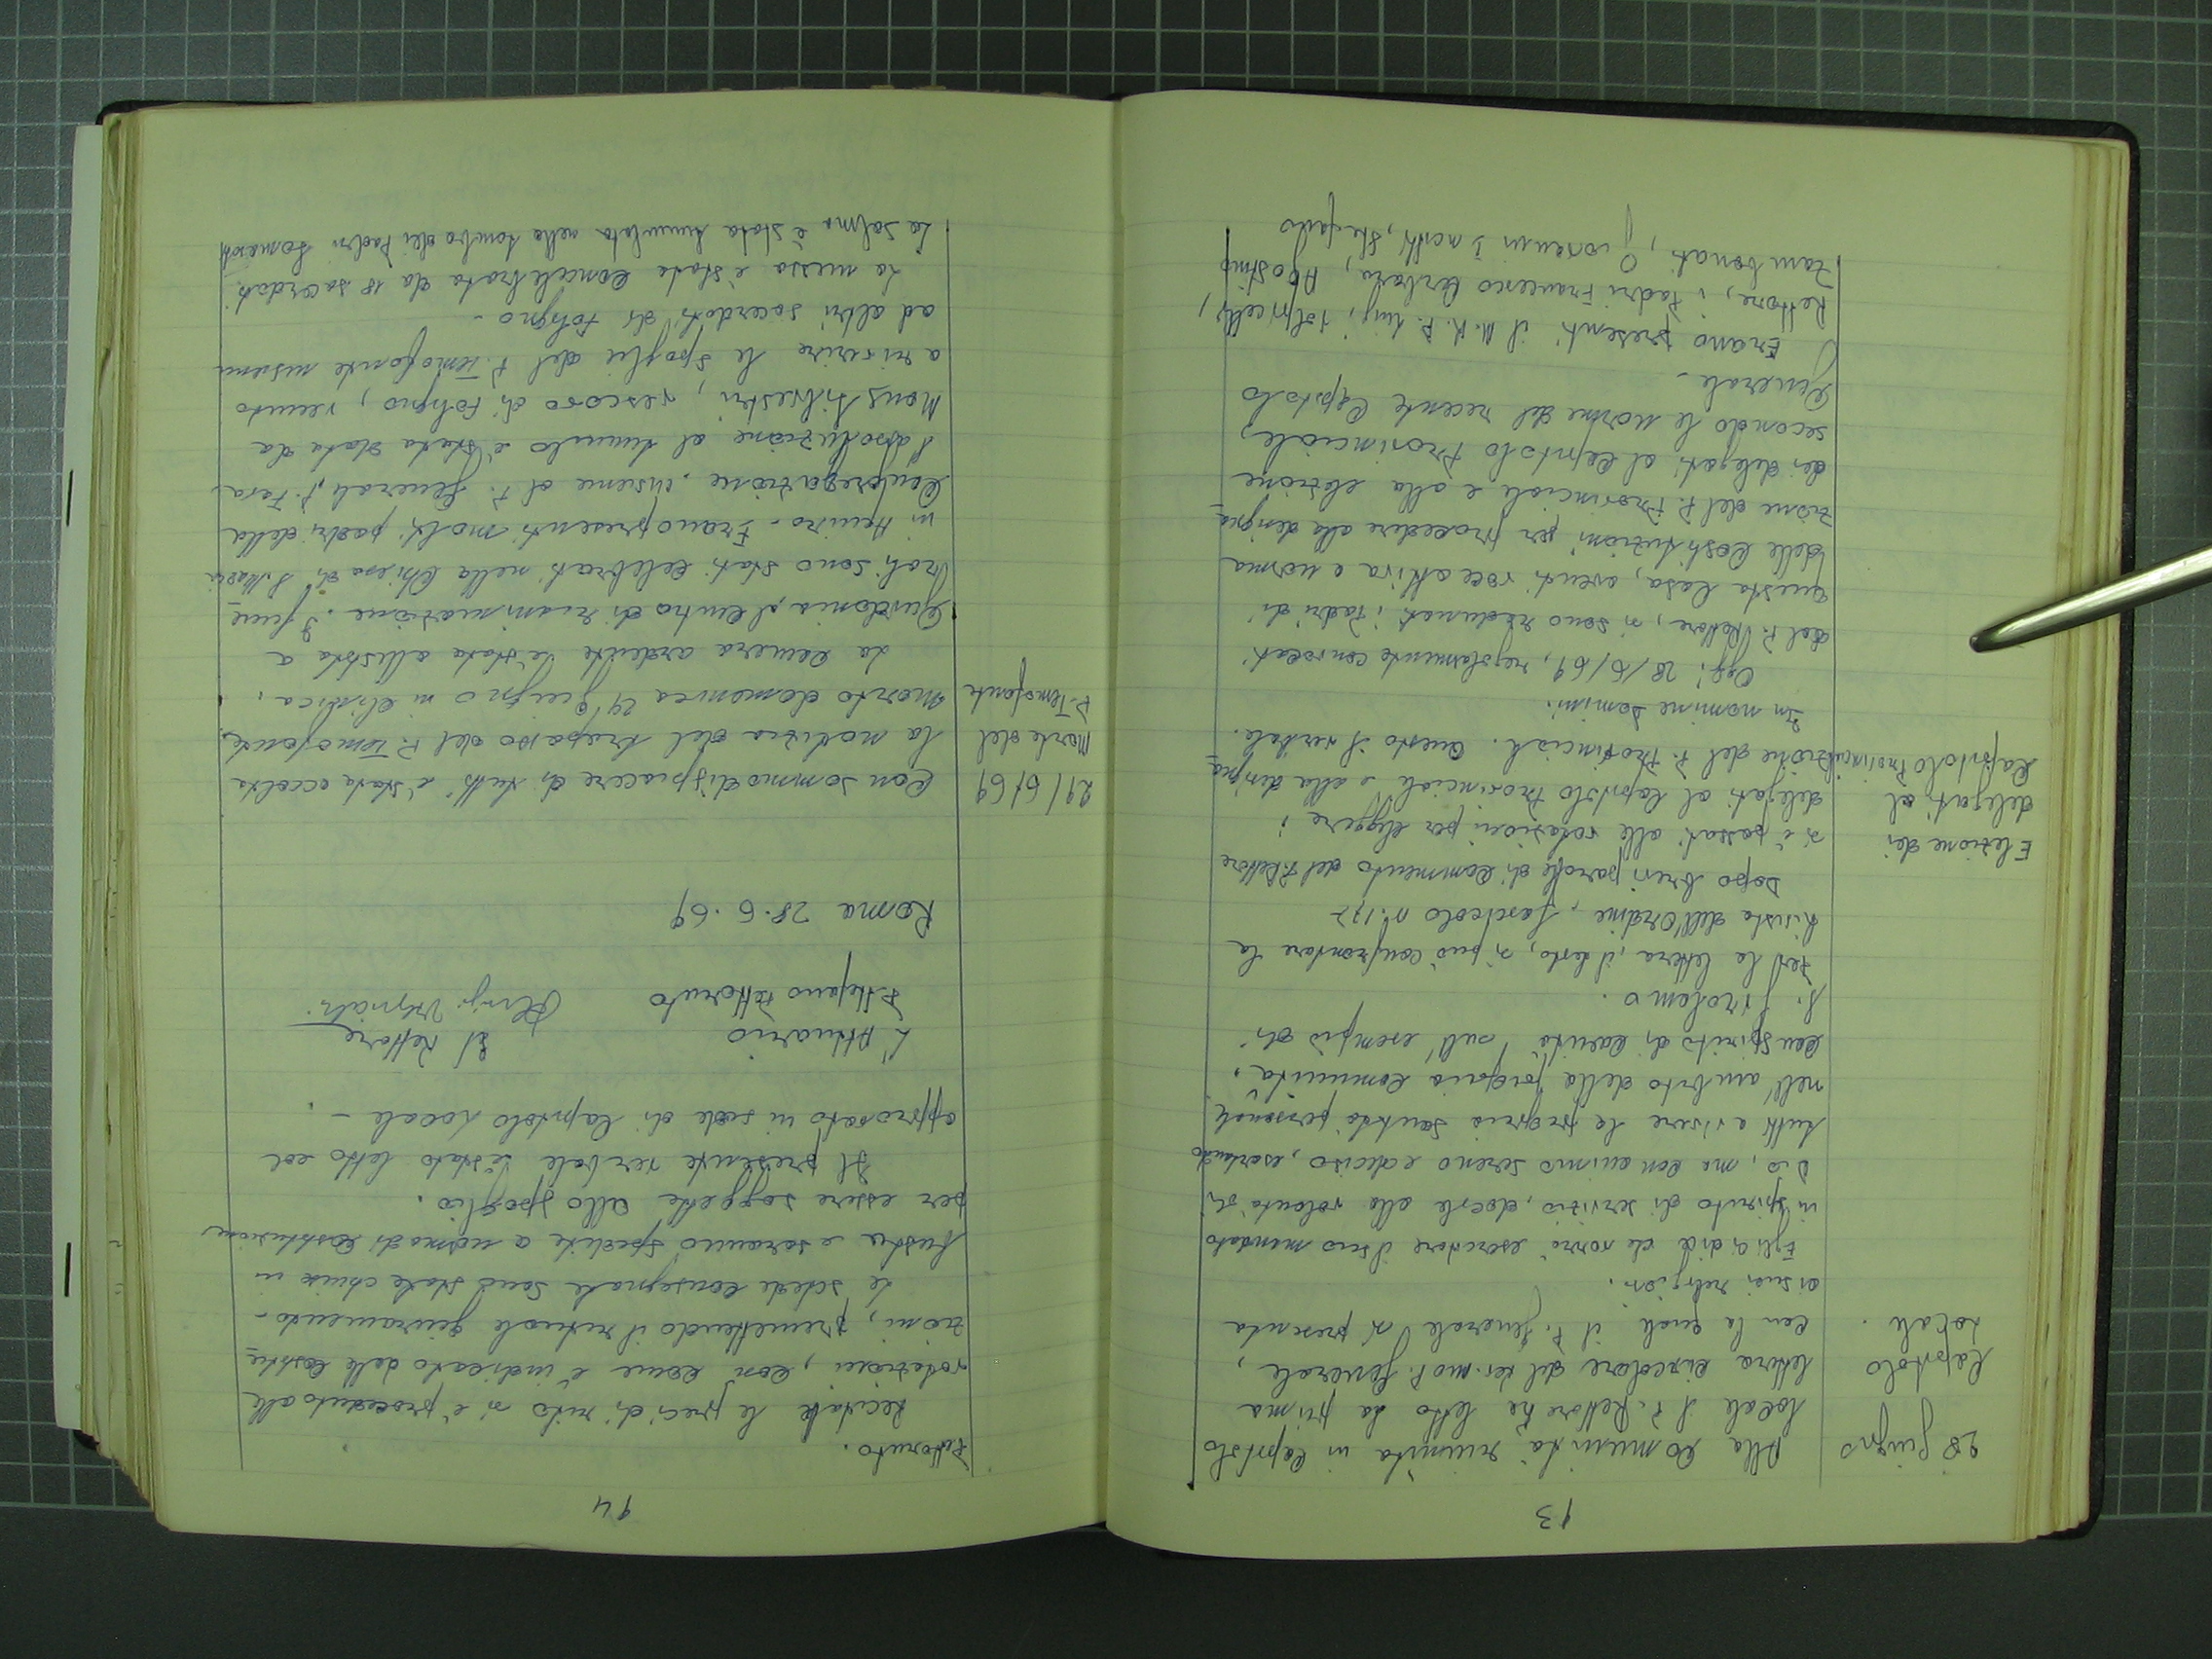 13
28 Giugno
Capitolo
Locale.
Alla Comunità riunita in Capitolo
locale il P. Rettore ha letto la prima
lettera circolare del rev.mo P. Generale,
con la quale il P. Generale si presenta
ai suoi religiosi.
Egli dice che vorrà esercitare il suo mandato
in spirito di servizio, docile alla volontà di
Dio, ma con animo sereno e deciso, esortando
tutti a vivere la propria santità personale
nell'ambito della propria Comunità,
con spirito di carità sull'esempio di
S. Girolamo.
Per la lettera, il testo, si può confrontare la
Rivista dell'Ordine, fascicolo n° 177
Elezione dei
delegati al
Capitolo Provinciale
Dopo brevi parole di commento del P. Rettore
si è passati alle votazioni per eleggere i
delegati al Capitolo Provinciale e alla designa
zione del P. Provinciale. Questo il verbale.
In nomine Domini.
Oggi 28/6/69, regolarmente convocati
dal P. Rettore, si sono radunati i Padri di
questa Casa, aventi voce attiva a norma
delle Costituzioni per procedere alla designa
zione del P. Provinciale e alla elezione
dei delegati al Capitolo Provinciale,
secondo le norme del recente Capitolo
Generale.
Erano presenti il M. R. P. Luigi
Rettore, i Padri Francesco Criveller, Agostino
Zambonati, Giovenum i nostri, Stefano
14
Pettoruto.
Recitate le preci di rito si è proceduto alle
votazioni, così come è indicato dalle Costitu
zioni, premettendo il rituale giuramento.
Le schede consegnate sono state chiuse in
busta e saranno spedite a norma di Costituzione
per essere soggette allo spoglio.
Il presente verbale è stato letto ed
approvato in sede di Capitolo Locale.
L'Attuario
P. Stefano Pettoruto
Il Rettore
P. Luigi
Roma 28.6.69
29/6/69
Morte del
P. Temofonte
Con sommo dispiacere di tutti è stata accolta
la notizia del trapasso del P. Temofonte,
morto domenica 29 giugno in clinica.
La camera ardente è stata allestita a
Guidonia, al Centro di rianimazione. I fune
rali sono stati celebrati nella Chiesa di S. Maria
in Aquiro. Erano presenti molti padri della
Congregazione. Insieme al P. Generale, P. Fava.
L'assoluzione al tumulo è stata data da
Mons. Silvestri, vescovo di Foligno, venuto
a riverire le spoglie del P. Temofonte insieme
ad altri sacerdoti di Foligno.
La messa è stata concelebrata da 18 sacerdoti.
La salma è stata tumulata nella tomba dei Padri Somaschi